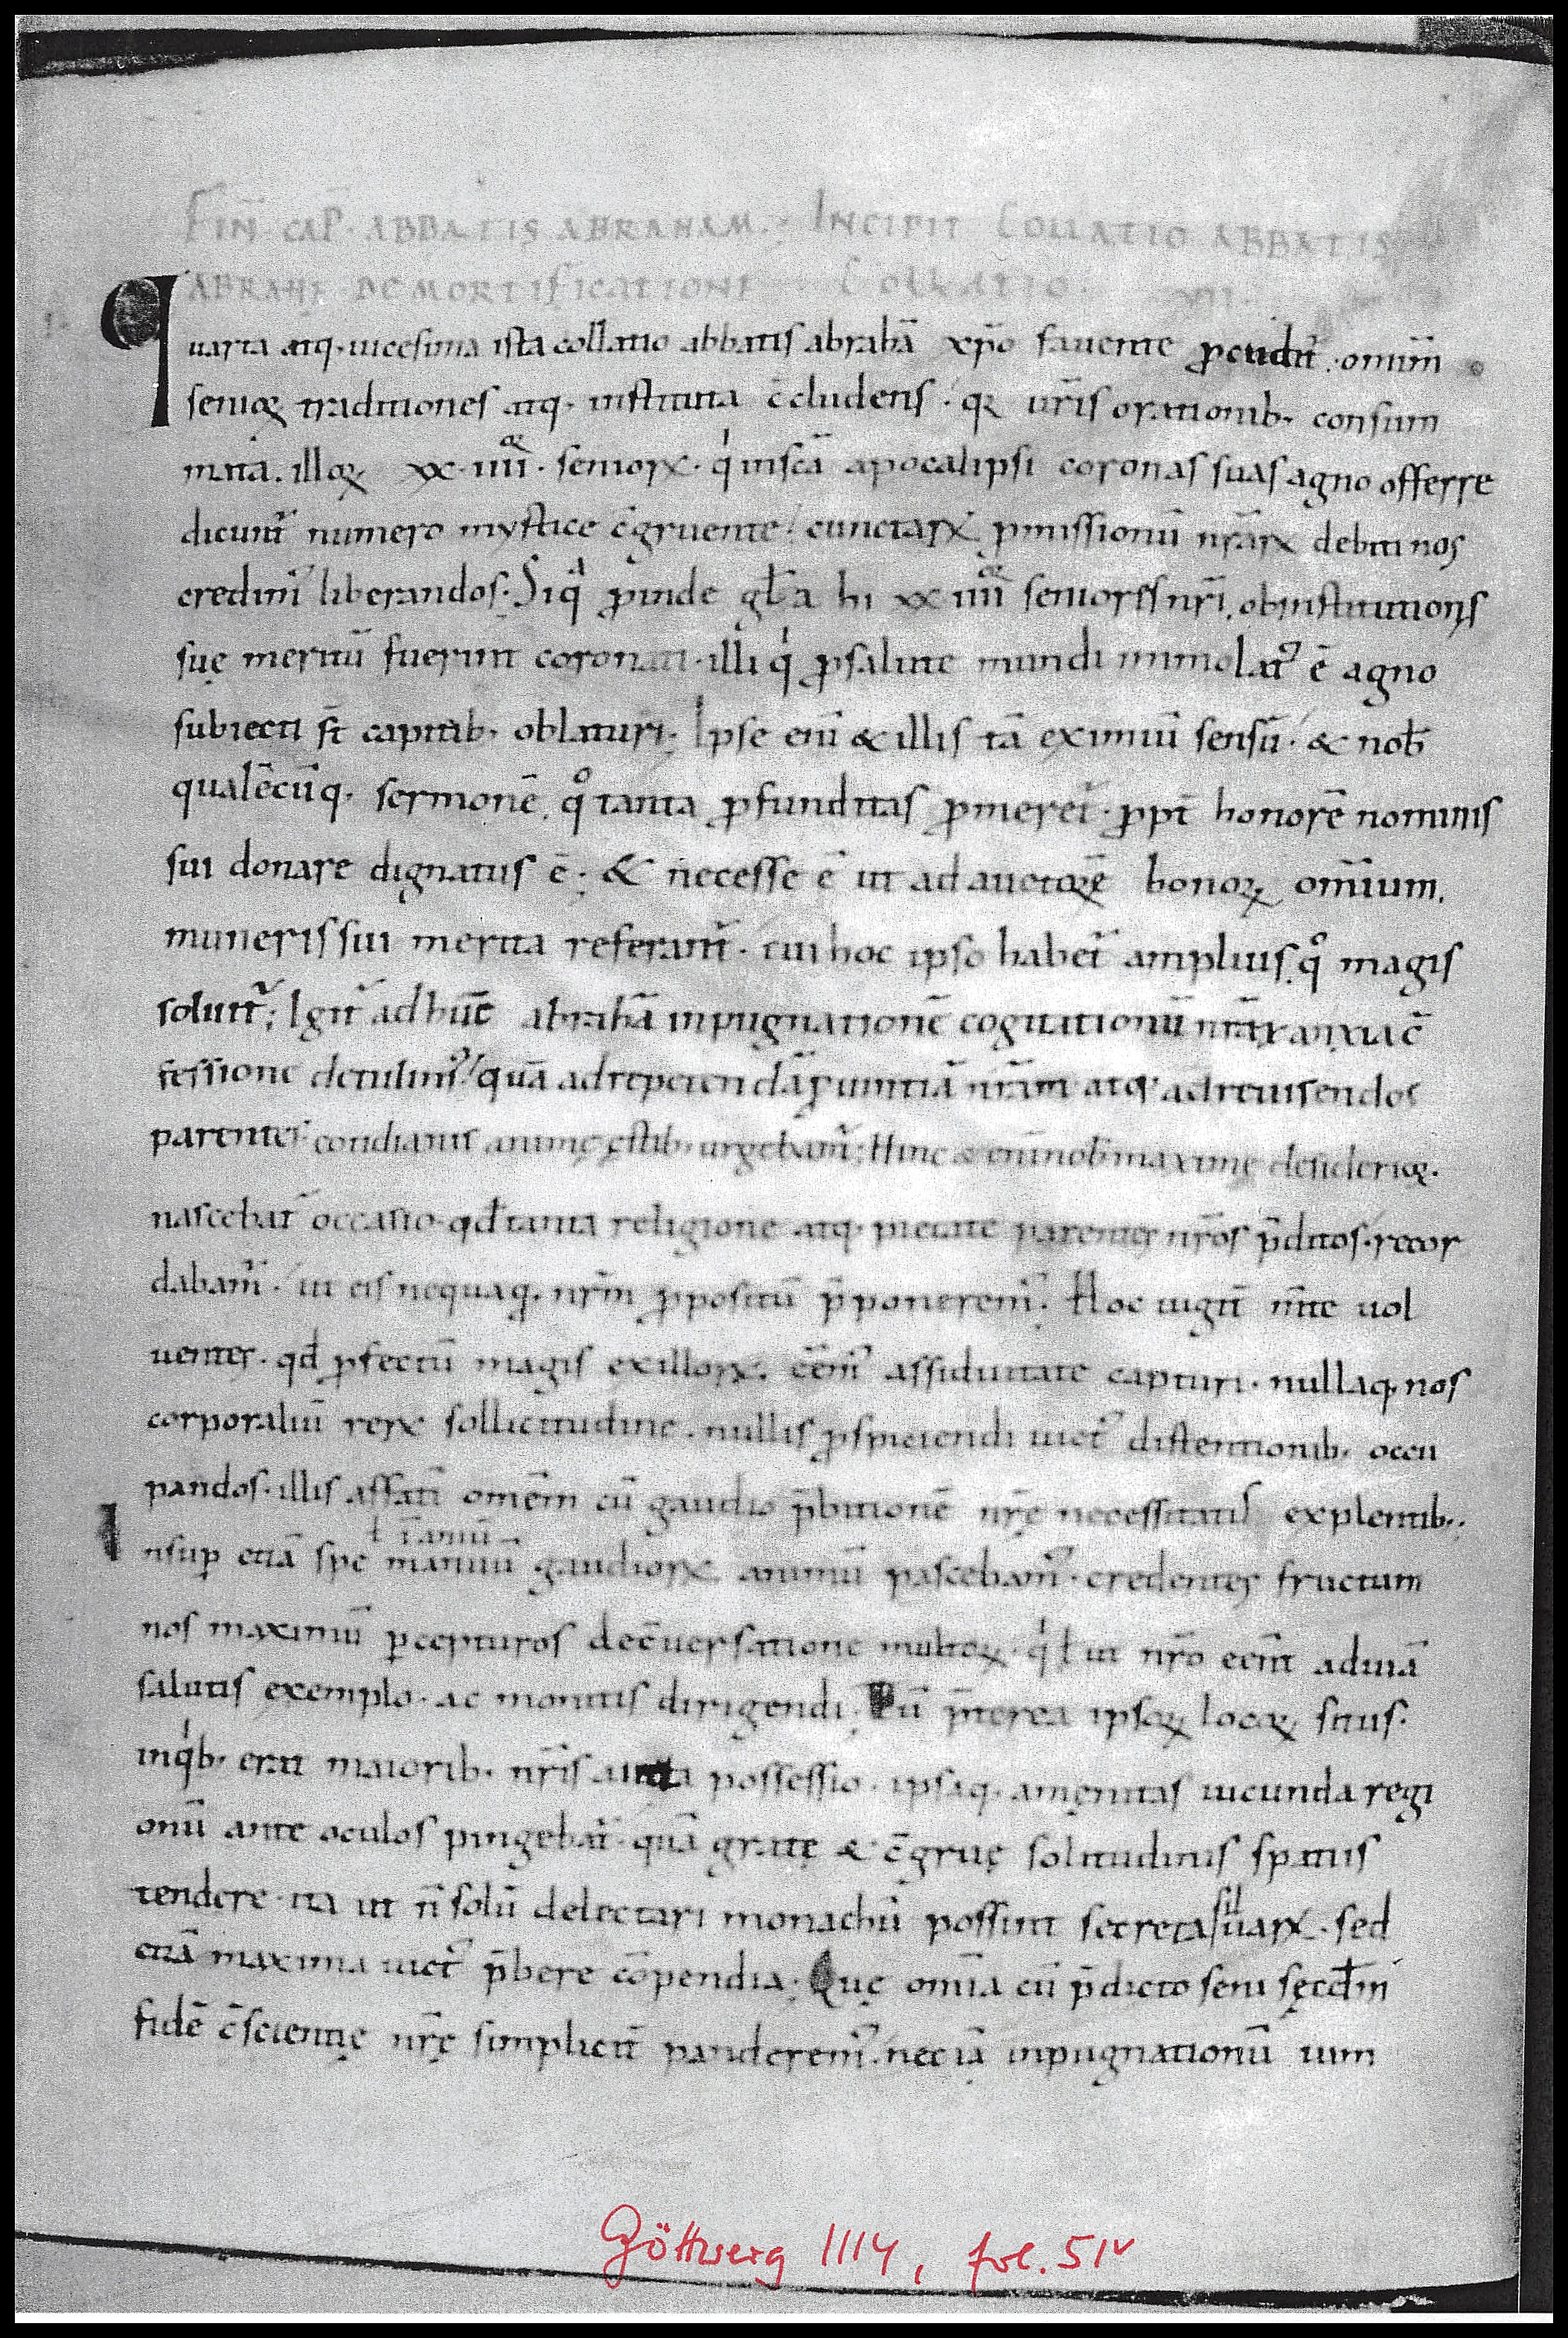 FIN̄ CAP̄ · ABBATIS ABRAHAM · INCIPIT COLLATIO ABBATIS
ABRAHĘ DE MORTIFICATIONE COLLATIO · VII ·
quarta atq· uicesima ista collatio abbatis abrahā xp̄o fauente ꝓcudit̄ · omnīm
senioꝝ traditiones atq· instituta c̄cludens · qę ur̄is orationib· consum
mata · illoꝝ xx · iiii · seniorꝝ · qi insc̄a apocalipsi coronas suas agno offerre
dicunt̄ numero mystice c̄gruente · cunctarꝝ ꝓmissionū nr̄arꝝ debiti nos
credim᾽ liberandos · Siqͣ ꝓinde gl̄a hi xx iiii seniores nr̄i · ob institutionis
suę meritū fuerint coronati · illi qͥ ꝓ salute mundi immolat᾽ ē agno
subiecti st̄ capitib· oblaturi · Ipse eni̅ & illis tā eximiū sensū · & nob̄
qualēcūq· sermonē qͦ tanta ꝓfunditas ꝓmeret̄ · ꝓpt̄ honorē nominis
sui donare dignatus ē · & necesse ē ut ad auctoꝝē bonoꝝ omīum ·
muneris sui merita referant̄ · cui hoc ipso habet̄ amplius qͦ magis
soluit̄ · Igit̄ ad hūc abrahā inpugnationē cogitationū nr̄arꝝ anxia c̄
fessione detulim᾽ · qua ad repetendā ꝓuintiā nr̄am atq· ad reuisendos
parentes cotidianis animę ęstib· urgebam᾽ · Hinc & eni̅ nob̄ maximę desiderioꝝ ·
nascebat̄ occasio · qd̄ tanta religione atq· pietate parentes nr̄os p̄ditos · recor
dabam᾽ · ut eis nequaq· nr̄m ꝓpositū p̄ponerem᾽ · Hoc iugit̄ m̄te uol
uentes · qd̄ ꝓfectū magis ex illorꝝ · c̄em᾽ assiduitate capturi · nullaq· nos
corporaliū rerꝝ sollicitudine · nullis ꝓspiciendi uict᾽ distentionib· occu
pandos · illis affatī omēm cū gaudio p̄bitionē nr̄ę necessitatis explentib··
ł i̅aniū
Insuꝑ etiā spe maniū gaudiorꝝ animū pascebam᾽ · credentes fructum
nos maximū ꝑcepturos de c̄uersatione multoꝝ · qͥ ł ut nr̄o eēnt ad uiā
salutis exemplo · ac monitis dirigendi · Tū p̄terea ipsoꝝ locoꝝ situs ·
in qͥb· erat maiorib· nr̄is auita possessio · ipsaq· amęnitas iucunda regi
onū ante oculos pingebat̄ · quā gratę & c̄gruę solitudinis spatiis
tendere · ita ut n̄ solū delectari monachū possint secreta siluarꝝ · sed
etiā maxima uict᾽ p̄bere cōpendia · Quę omīa cū p̄dicto seni sęcd̄m
fidē c̄scientię nr̄ę simplicit̄ panderem᾽ · nec iā inpugnationū uim
Göttweig 1114, fol. 51v